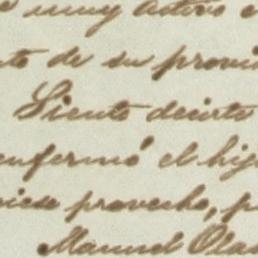 muy activo
de su provin
Siento decirte
enfermó el hij
provecho, p
Manuel Olas